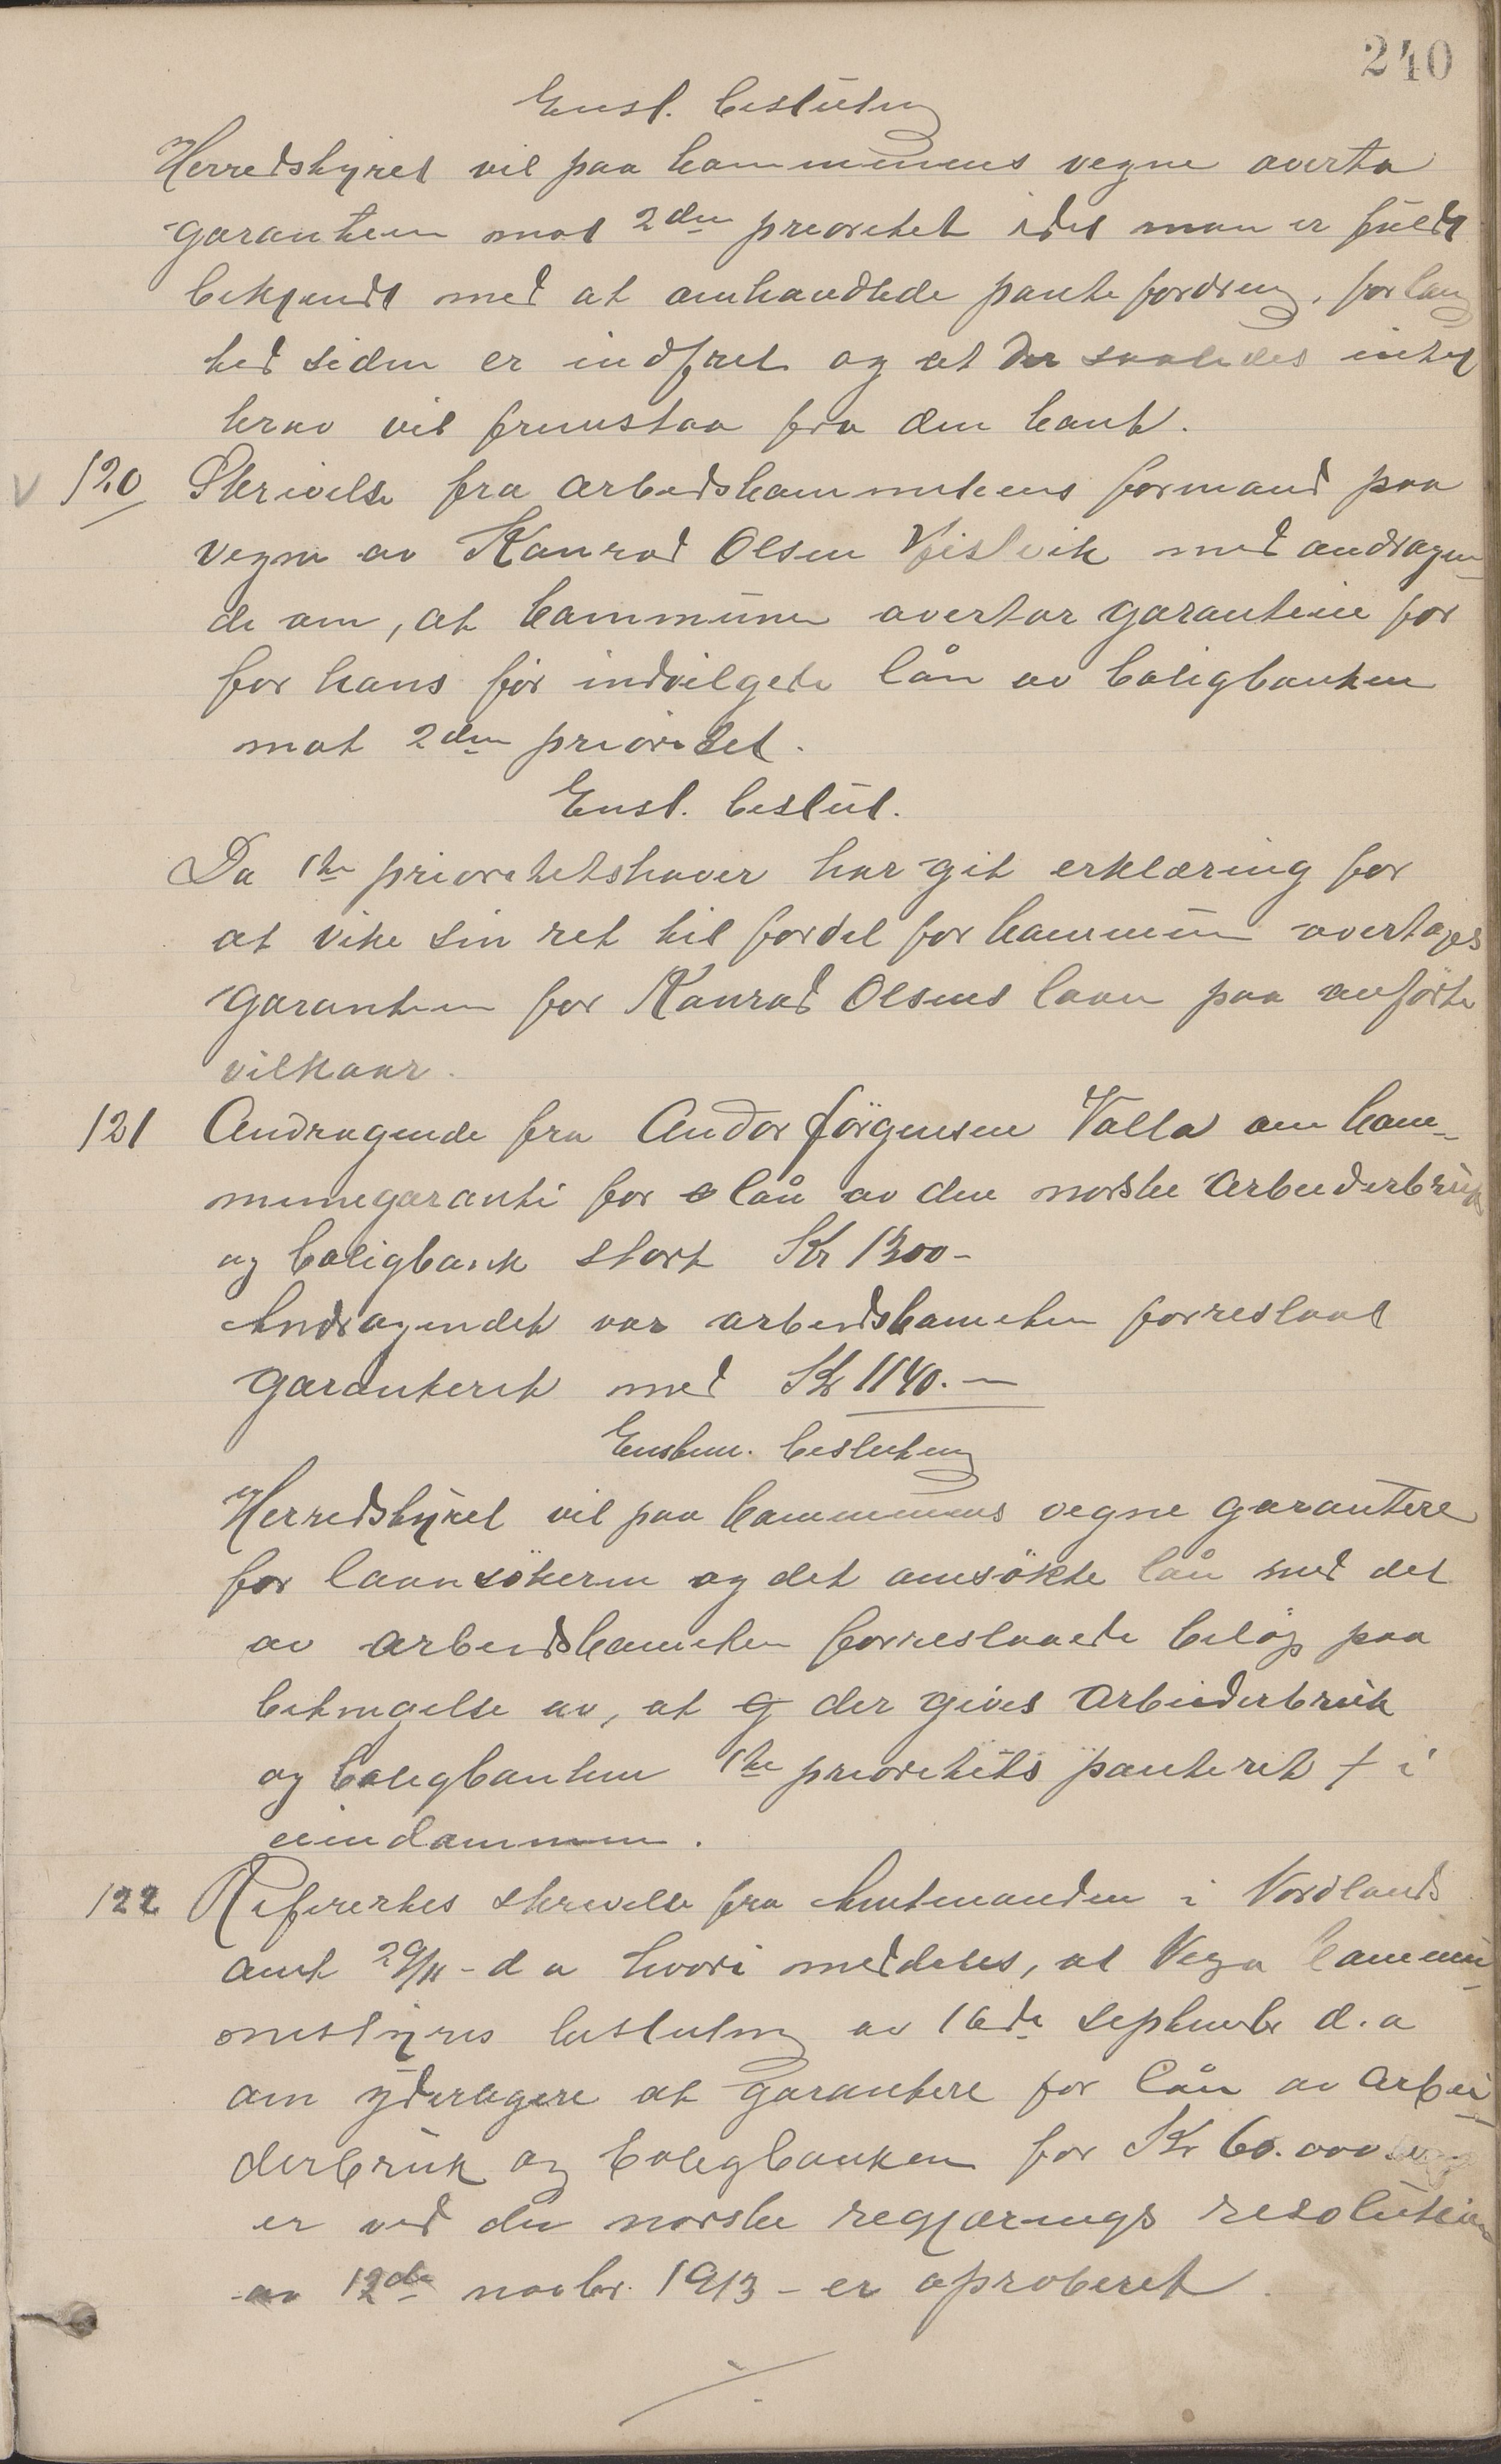 240
Enst. beslutn
Herredstyret vil paa kommunens vegne overta
garantien mot 2den prioritet idet man er fuldt
bekjendt med at omhandlede pantefordring, for lang
tid siden er indfriet og at der saaledes intet
krav vil fremstaa fra den kant.
V 120 Skrivelse fra arbeidskommiteens formand paa
vegne av Konrad Olsen med andragen-
de om, at kommunen overtar garantien for
for hans för indvilgede lån av boligbanken
mot 2den prioritet.
Enst. beslut.
Da 1ste prioritetshaver har git erklæring for
at vike sin ret til fordel for kommunen overtages
garantien for Konrad Olsens laan paa anførte
vilkaar.
121 Andragende fra Andor Jörgensen Valla om kom-
munegaranti for lån av den norske Arbeiderbruk
og boligbank stort Kr 1300-
Andragendet var arbeidskomiteen forreslaat
garanteret med Kr 1140.-
Enstem. beslutning
Herredstyret vil paa kommunens vegne garantere
for laansökeren og det ansökte lån med det
av arbeidskomiteen forreslaaede belöp paa
betingelse av, at g der gives Arbeiderbruk
og boligbanken 1ste prioritets panteret i
eiendommen.
122 Refirertes skrivelse fra Amtmanden i Nordlands
amt 29/11 - d a hvori meddeles, at Vega kommu-
nestyres beslutning av 16de september d.a
om yderligere at garantere for lån av Arbei-
derbruk og boligbanken for Kr 60.000
er ved den norske regjærings resolution
av 12de novbr. 1913 - er aproberet.